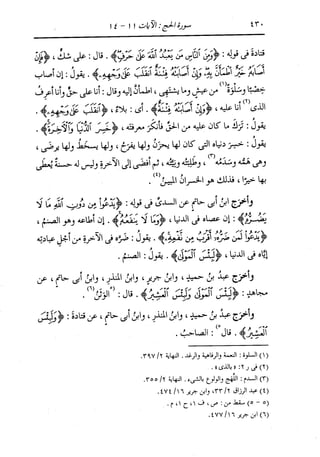 ٤٣٠ سورة الحج: الآيات ١١ - ١٤
قتادة فى قوله: ﴿وَمِنَ النَّاسِ مَن يَعْبُدُ اللَّهَ عَلَى حَرْفٍ﴾. قال: على شكٍّ، ﴿فَإِنْ
أَصَابَهُ خَيْرٌ اطْمَأَنَّ بِهِ وَإِنْ أَصَابَتْهُ فِتْنَةٌ انقَلَبَ عَلَى وَجْهِهِ﴾. يقولُ: إن أصاب
خِصْبًا وسَلْوَةً(١) من عيشٍ وما يشتهى، اطمأنَّ إليه وقال: أنا على حقٍّ وأنا أعرف
الذى(٢) أنا عليه، ﴿وَإِنْ أَصَابَتْهُ فِتْنَةٌ﴾. أى: بلاءٌ، ﴿انقَلَبَ عَلَى وَجْهِهِ﴾.
يقولُ: ترَك ما كان عليه من الحقِّ فأنكَر معرفته، ﴿خَسِرَ الدُّنْيَا وَالْآخِرَةَ﴾.
يقولُ: خسِر دنياه التى كان لها يحزنُ ولها يفرحُ، ولها يسخطُ ولها يرضى،
وهى همُّه وسَدَمُه(٣)، وطَلِبتُه ونيَّتُه، ثم أفضَى إلى الآخرةِ وليس له حسنةٌ يُعطَى
بها خيرًا، فذلك هو الخسرانُ المبينُ(٤).
وأخرَج ابنُ أبى حاتمٍ عن السدىِّ فى قوله: ﴿يَدْعُو مِن دُونِ اللَّهِ مَا لَا
يَضُرُّهُ﴾: إن عصاه فى الدنيا، ﴿وَمَا لَا يَنفَعُهُ﴾. إن أطاعه وهو الصنمُ،
﴿يَدْعُو لَمَن ضَرُّهُ أَقْرَبُ مِن نَّفْعِهِ﴾. يقولُ: ضرُّه فى الآخرةِ من أجلِ عبادتِه
إيَّاه فى الدنيا، ﴿لَبِئْسَ الْمَوْلَى﴾. يقولُ: الصنمُ.
وأخرَج عبدُ بنُ حميدٍ، وابنُ جريرٍ، وابنُ المنذرِ، وابنُ أبى حاتمٍ، عن
مجاهدٍ: ﴿لَبِئْسَ الْمَوْلَى وَلَبِئْسَ الْعَشِيرُ﴾. قال: (٥الوَثَنُ(٦).
وأخرَج عبدُ بنُ حميدٍ، وابنُ المنذرِ، وابنُ أبى حاتمٍ، عن قتادةَ: ﴿وَلَبِئْسَ
الْعَشِيرُ﴾. قال٥): الصاحبُ.
(١) السلوة: النعمة والرفاهية والرغد. النهاية ٢/ ٣٩٧.
(٢) فى ر ٢: «بالذى».
(٣) السدم: اللَّهَج والولوع بالشىء. النهاية ٢/ ٣٥٥.
(٤) عبد الرزاق ٢/ ٣٣، وابن جرير ١٦/ ٤٧٤.
(٥ - ٥) سقط من: ص، ف ١، ح ١، م.
(٦) ابن جرير ١٦/ ٤٧٧.